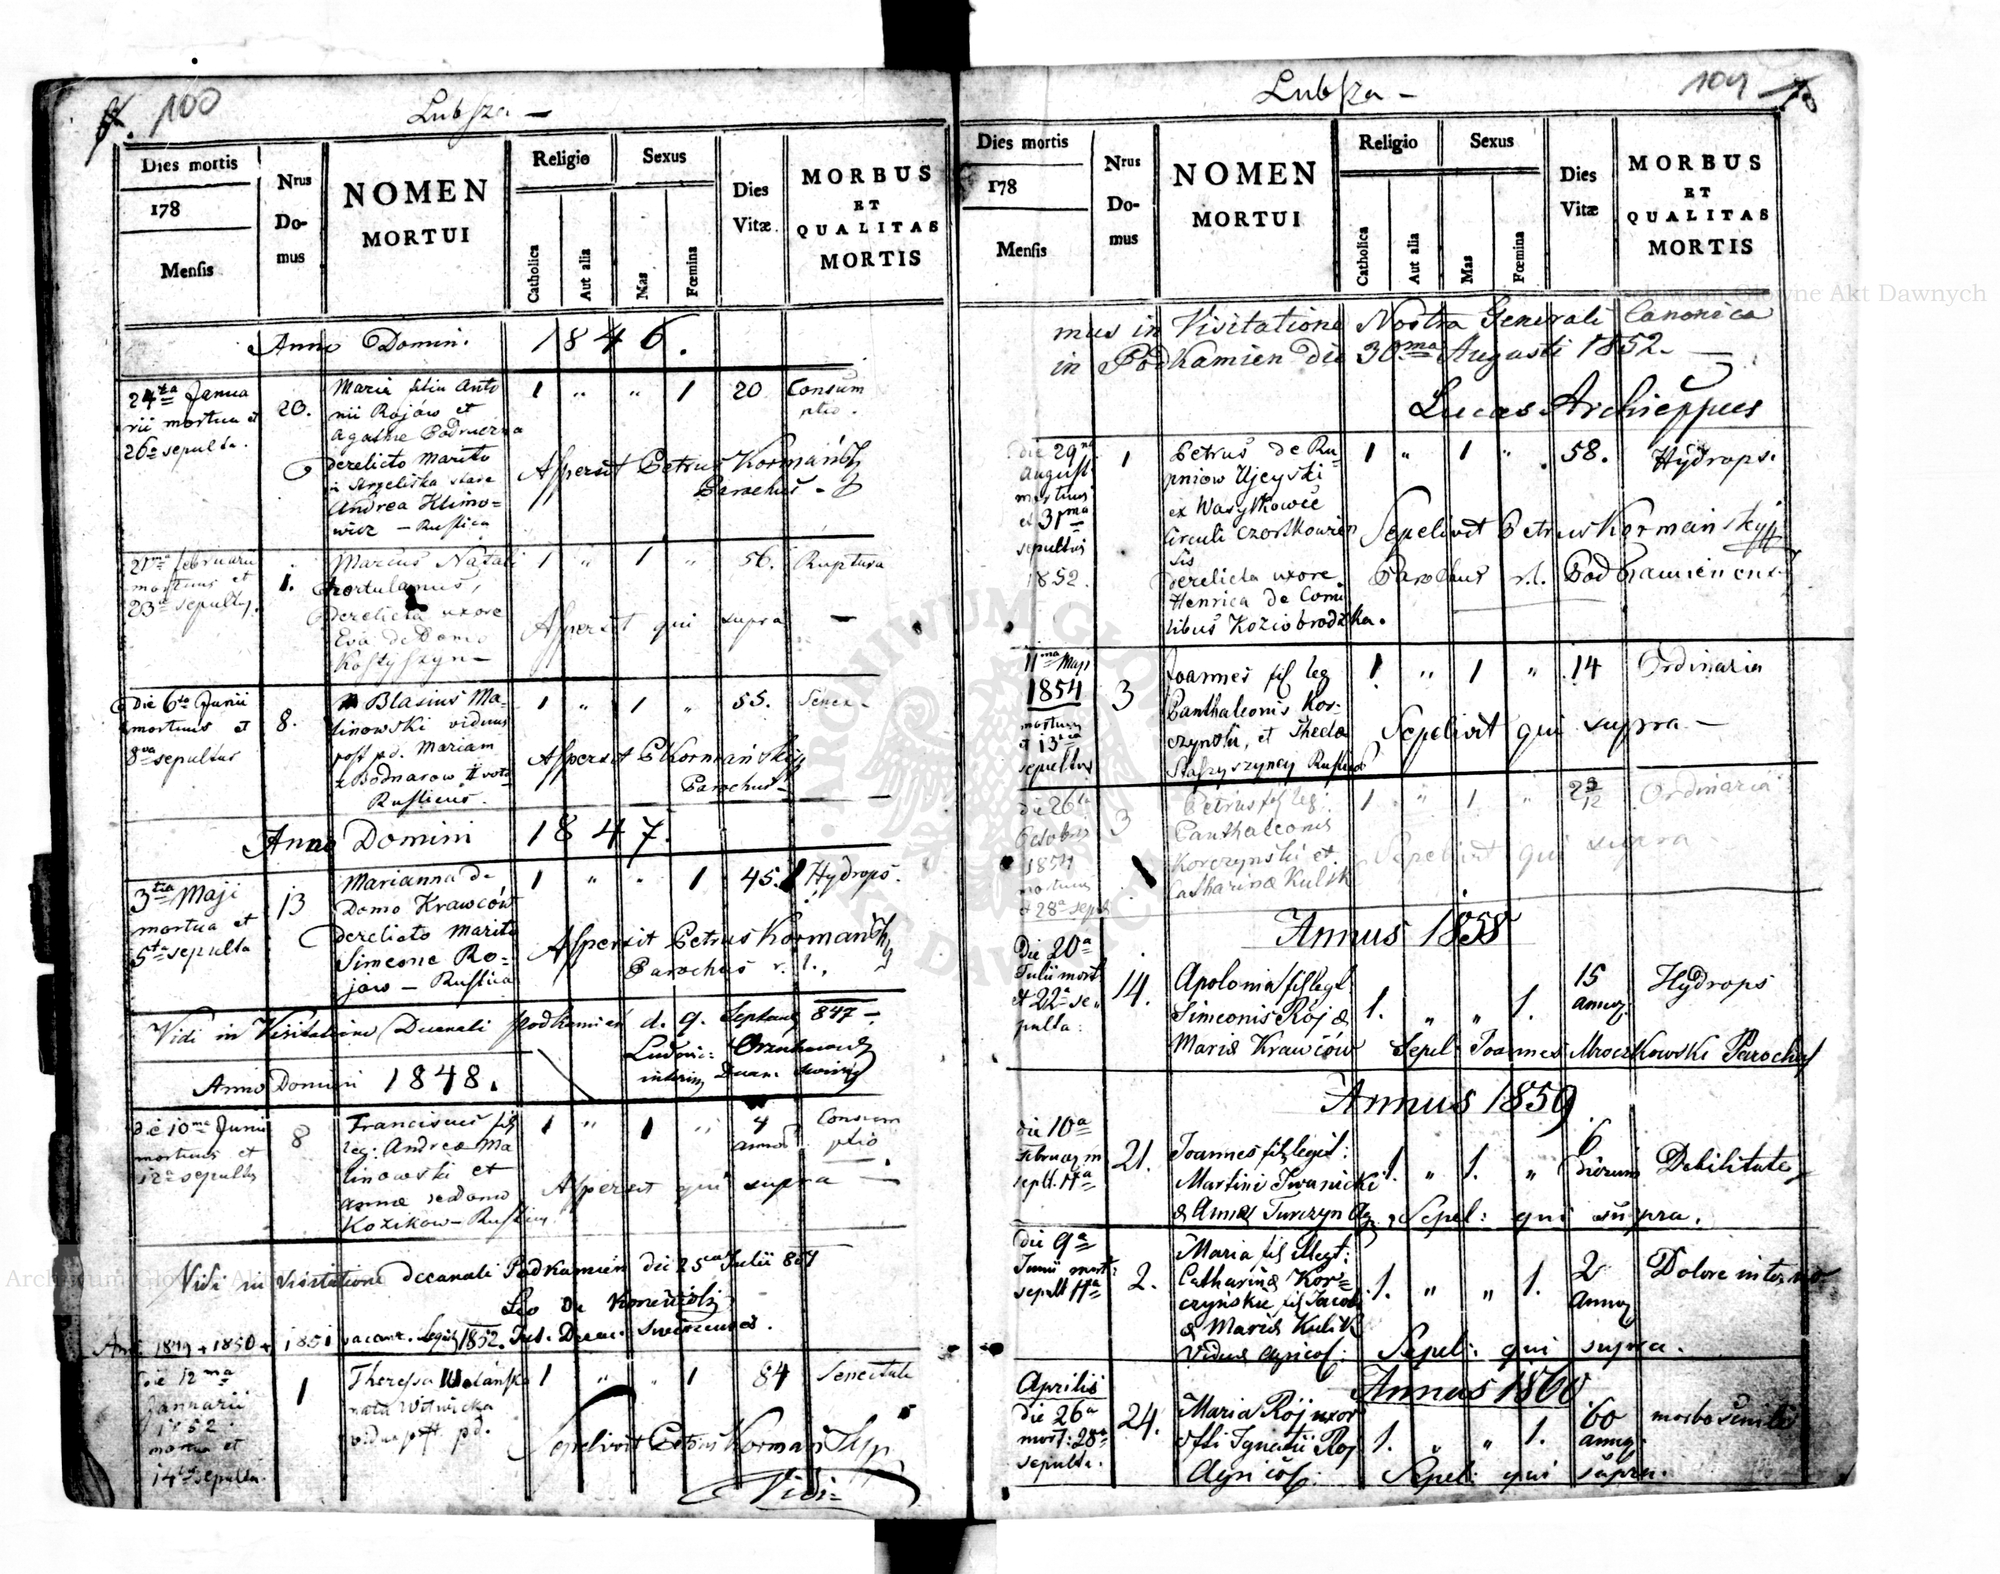 100
Lubsza —
Dies mortis
178
Mensis
Nrus
Do-
mus
NOMEN
MORTUI
Religio
Catholica
Aut alia
Sexus
Mas
Fœmina
Dies
Vitæ
MORBUS
ET
QUALITAS
MORTIS
Anno Domini 1846.
24ta Janua
rii mortua et
26a sepulta.
20.
Maria filia Anto
nii Rojów et
Agathae
derelicto Marito
Andrea Klimo-
wicz — Rustica
1 " " 1 20 Consum
ptio.
Aspersit Petrus Kormański
Parochus
21ma februarii
mortuus et
23a sepultus.
1.
Marcus Natali
hortulanus,
derelicta uxore
Eva de Domo
Kostyszyn —
1 " 1 " 56. Ruptura
Aspersit qui supra —
Die 6ta Junii
mortuus et
8va sepultus
8.
Blasius Ma-
linowski viduus
post p.d. Mariam
z Bodnarow I voto
Rusticus.
1 " 1 " 55. Senex —
Aspersit PKormański
Parochus —
Anno Domini 1847.
3tia Maji
mortua et
5ta sepulta
13
Marianna de
Domo Krawców
derelicto Marito
Simeone Ro-
jów — Rustica
1 " " 1 45. Hydrops.
Aspersit Petrus Kormański
Parochus r. l.
Vidi in Visitatione Decanali Podkamień d. 9. 847 —
Anno Domini 1848.
die 10ma Junii
mortuus et
12a sepultus
8
Franciscus fil
leg: Andreae Ma
linowski et
Annae de Domo
Kozikow — Rustici
1 " 1 " 4
annor.
Consum
ptio
Aspersit qui supra —
Vidi in Visitatione decanali Podkamień die 25 Julii 851
Leo de
Ann. 1849 + 1850 + 1851 vacant. 1852.
die 12ma
Januarii
1852
mortua et
14ta sepulta
1
Theressa Wolańska
nata Witwicka
vidua post pd.
1 " " 1 84 Senectute
Sepelivit Petrus Kormański
Vidi —
104
Lubsza —
Dies mortis
178
Mensis
Nrus
Do-
mus
NOMEN
MORTUI
Religio
Catholica
Aut alia
Sexus
Mas
Fœmina
Dies
Vitæ
MORBUS
ET
QUALITAS
MORTIS
mus in Visitatione Nostra Generali Canonica
in Podkamień die 30ma Augusti 1852. —
Lucas Archieppus
die 29na
August
mortuus
et 31ma
sepultus
1852.
1
Petrus de Ru-
pniow Ujeyski
ex Wasylkowce
Circuli Czortkowien
sis
derelicta uxore
Henrica de Comi
tibus Koziobrodzka.
1 " 1 " 58. Hydrops.
Sepelivit Petrus Kormański
Parochus r.l. Podkamienensis
11ma Maji
1854
mortuus
et 13tia
sepultus
3
Joannes fil leg
Panthaleonis Kor-
czyński, et Thecla
Staszyszyncy Rustici
1 " 1 " 14 Ordinaria
Sepelivit qui supra —
die 26ta
Octobris
1854
mortuus
et 28a sepult
3
Petrus fil leg:
Panthaleonis
Korczynski et
Catharinae Kulik
1 " 1 " 2 3/12 Ordinaria
Sepelivit qui supra —
Annus 1858
Die 20a
Julii mort
et 22a se-
pulta:
14.
Apolonia fil legt
Simeonis Roj &
Mariae Krawców
1. " " 1. 15
annor.
Hydrops
Sepel: Joannes Mroczkowski Parochus
Annus 1859
die 10a
Februar m
sepult. 11a
21.
Joannes fil legit:
Martini Iwanicki
& Annae Turczyn
1. " 1. " 6
dierum
Debilitate
Sepel: qui supra.
die 9a
Junii mort:
sepult 11a
2.
Maria fil illegt:
Catharinae Kor-
czyńskie fil Jacobi
& Mariae Kulik
Viduae agricol:
1. " " 1. 2
annor
Dolore interno
Sepel: qui supra.
Annus 1860
Aprilis
die 26a
mort: 28a
sepulta.
24.
Maria Roj uxor
Ignatii Roj
Agricol:
1. " " 1. 60
annor.
morbo senili
Sepel: qui supra.
Archiwum Główne Akt Dawnych
ARCHIWUM GŁÓWNE AKT DAWNYCH